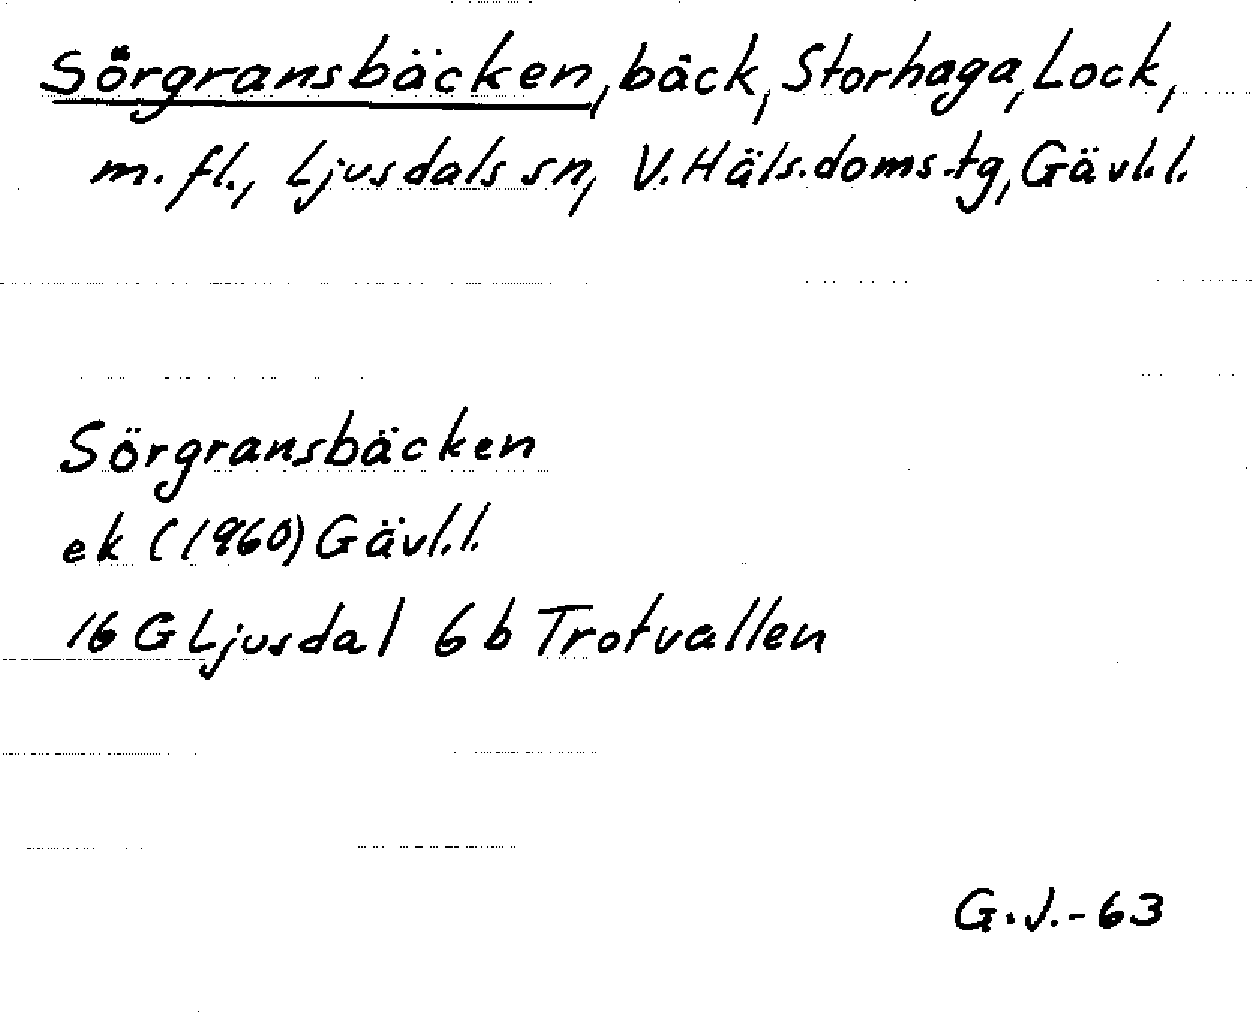 Sörgransbäcken, bäck, Storhaga, Lock,
m. fl., Ljusdals sn, V. Häls. doms.-tg, Gävl. l.
Sörgransbäcken
ek (1960) Gävl. l.
16 G Ljusdal 6 b Trotvallen
G. J. - 63